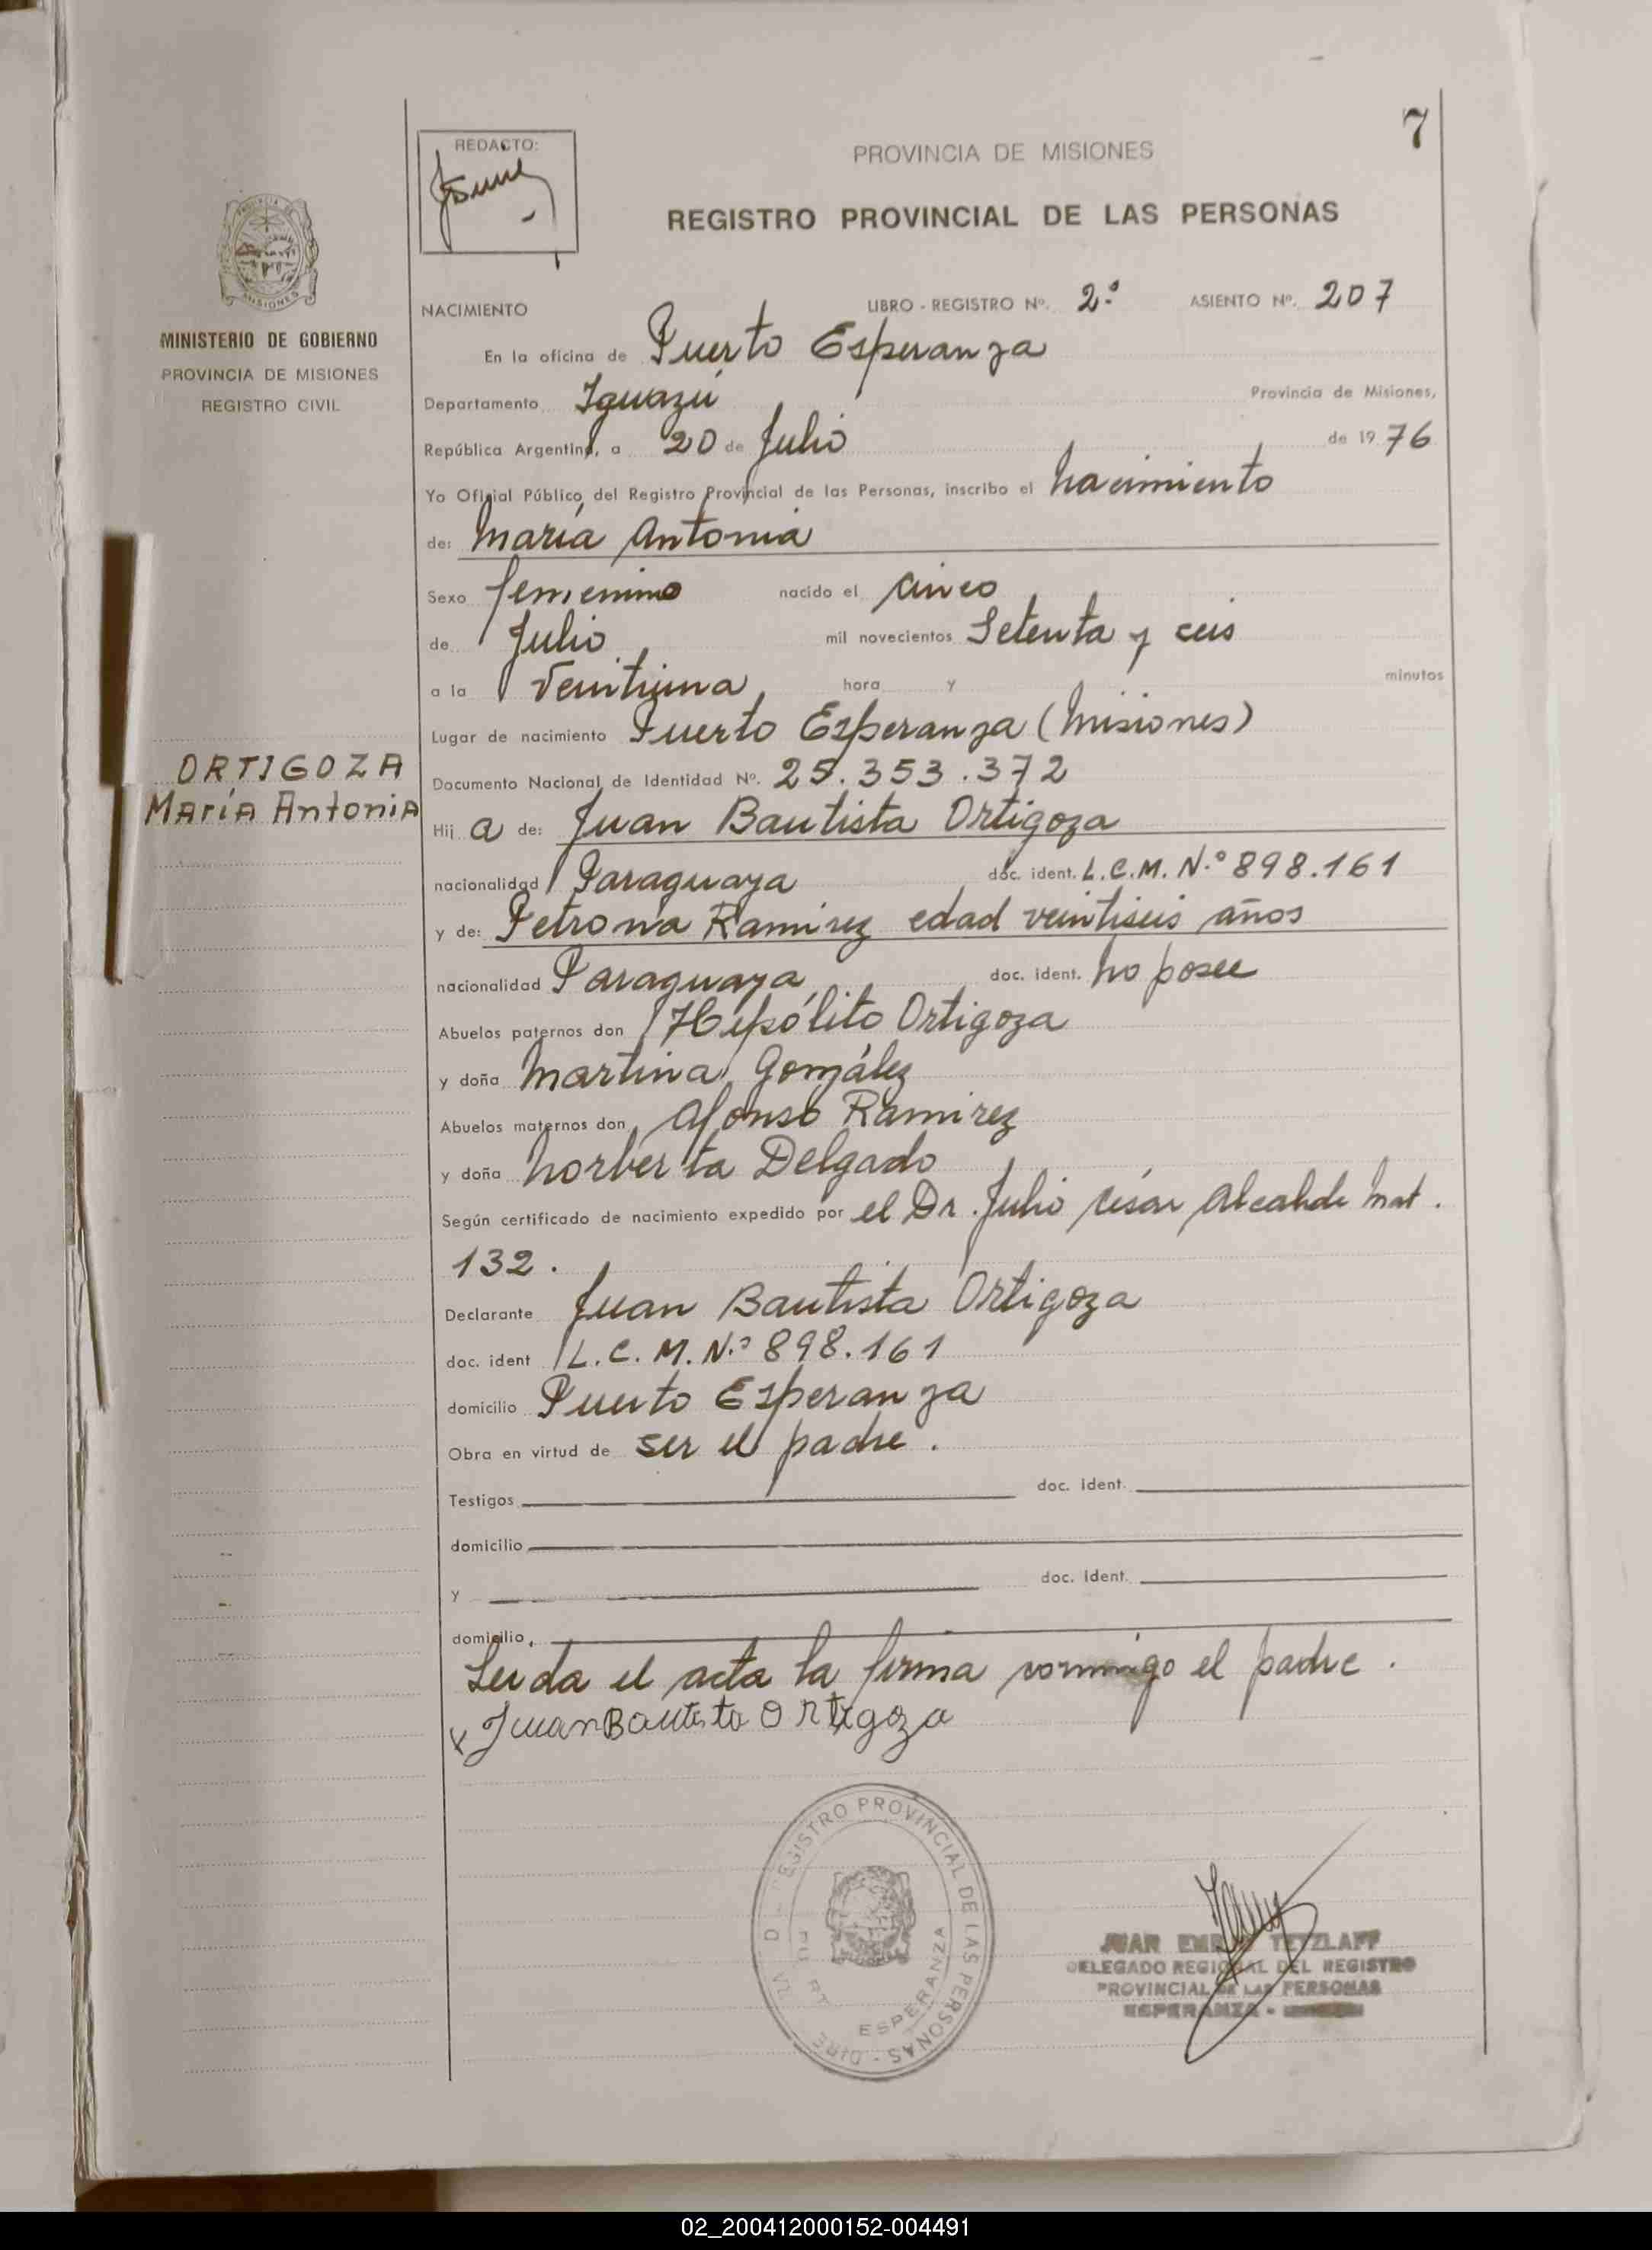 7
REDACTO:
PROVINCIA DE MISIONES
REGISTRO PROVINCIAL DE LAS PERSONAS
MISIONES
MINISTERIO DE GOBIERNO
PROVINCIA DE MISIONES
REGISTRO CIVIL
NACIMIENTO LIBRO - REGISTRO Nº. 2º ASIENTO Nº. 207
En la oficina de Puerto Esperanza
Departamento Iguazú Provincia de Misiones,
República Argentina, a 20 de Julio de 1976
Yo Oficial Público del Registro Provincial de las Personas, inscribo el nacimiento
de: María Antonia
Sexo femenino nacido el cinco
de Julio mil novecientos Setenta y ceis
a la Veintiuna hora y minutos
Lugar de nacimiento Puerto Esperanza (Misiones)
ORTIGOZA
María Antonia
Documento Nacional de Identidad Nº. 25.353.372
Hij a de: Juan Bautista Ortigoza
nacionalidad Paraguaya doc. ident. L.C.M. N.º 898.161
y de: Petrona Ramirez edad veintiseis años
nacionalidad Paraguaya doc. ident. no posee
Abuelos paternos don Hipólito Ortigoza
y doña Martina González
Abuelos maternos don Afonso Ramirez
y doña Norberta Delgado
Según certificado de nacimiento expedido por el Dr. Julio César Alcahde Mat.
132.
Declarante Juan Bautista Ortigoza
doc. ident L.C.M. N.º 898.161
domicilio Puerto Esperanza
Obra en virtud de ser el padre.
Testigos doc. ident.
domicilio
y doc. ident.
domicilio
Leida el acta la firma conmigo el padre.
x Juan Bautista Ortigoza
REGISTRO PROVINCIAL DE LAS PERSONAS - DIRE
ESPERANZA
JUAN TETZLAFF
DELEGADO REGIONAL DEL REGISTRO
PROVINCIAL DE LAS PERSONAS
ESPERANZA -
02_200412000152-004491